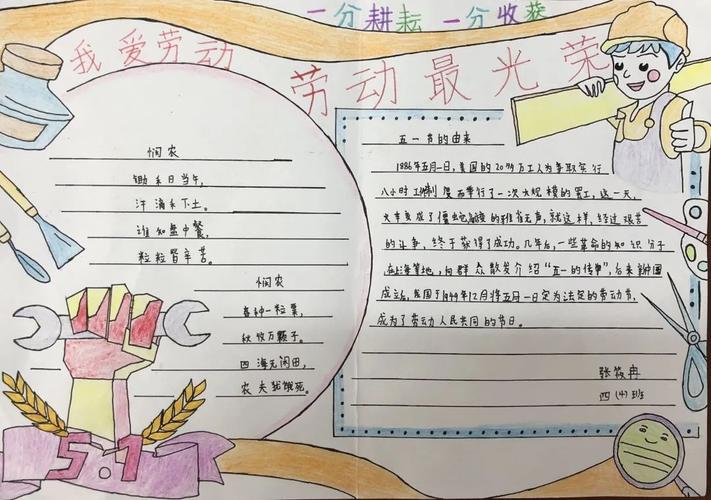 一分耕耘 一分收获
我爱劳动
劳动最光荣
悯农
锄禾日当午,
汗滴禾下土。
谁知盘中餐,
粒粒皆辛苦。
悯农
春种一粒粟,
秋收万颗子。
四海无闲田,
农夫犹饿死。
五一节的由来
1886年五月一日,美国的20多万工人为争取实行
八小时工作制 举行了一次大规模的罢工,这一天,
的斗争,终于获得了成功。几年后,一些革命的知识分子
在上海等地,向群众散发介绍“五一的传单”,后来新中国
成立后,我国于1949年12月将五月一日定为法定的劳动节,
成为了劳动人民共同的节日。
张筱冉
四(4)班
5.1